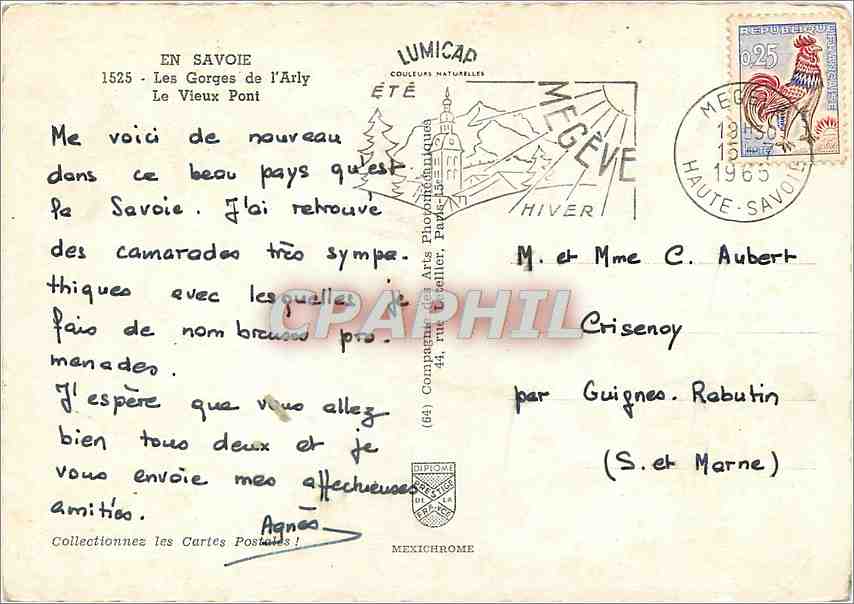 EN SAVOIE
1525 - Les Gorges de l'Arly
Le Vieux Pont
LUMICAP
COULEURS NATURELLES
ÉTÉ
MEGÈVE
HIVER
REPUBLIQUE
FRANÇAISE
0,25
1965
HAUTE-SAVOIE
Me voici de nouveau
dans ce beau pays qu'est
la Savoie. J'ai retrouvé
des camarades très sympa-
thiques avec lesquelles je
fais de nombreuses pro-
menades.
J'espère que vous allez
bien tous deux et je
vous envoie mes affectueuses
amitiés.
Agnès
Collectionnez les Cartes Postales !
(64) Compagnie des Arts Photomécaniques
44, rue Letellier, Paris-15e
CPAPHIL
M. et Mme C. Aubert
Crisenoy
par Guignes-Rabutin
(S. et Marne)
DIPLOME
PRESTIGE
DE LA
FRANCE
MEXICHROME